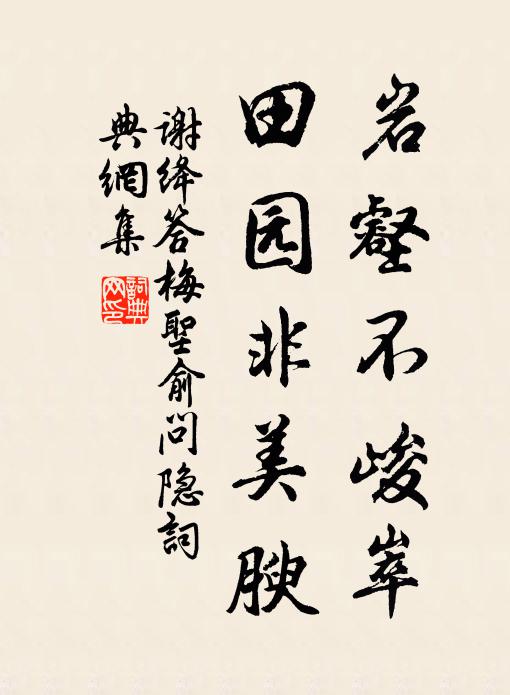 岩壑不峻崒
田园非美腴
谢绛答梅聖俞问隐詞
典網集
詞典网印